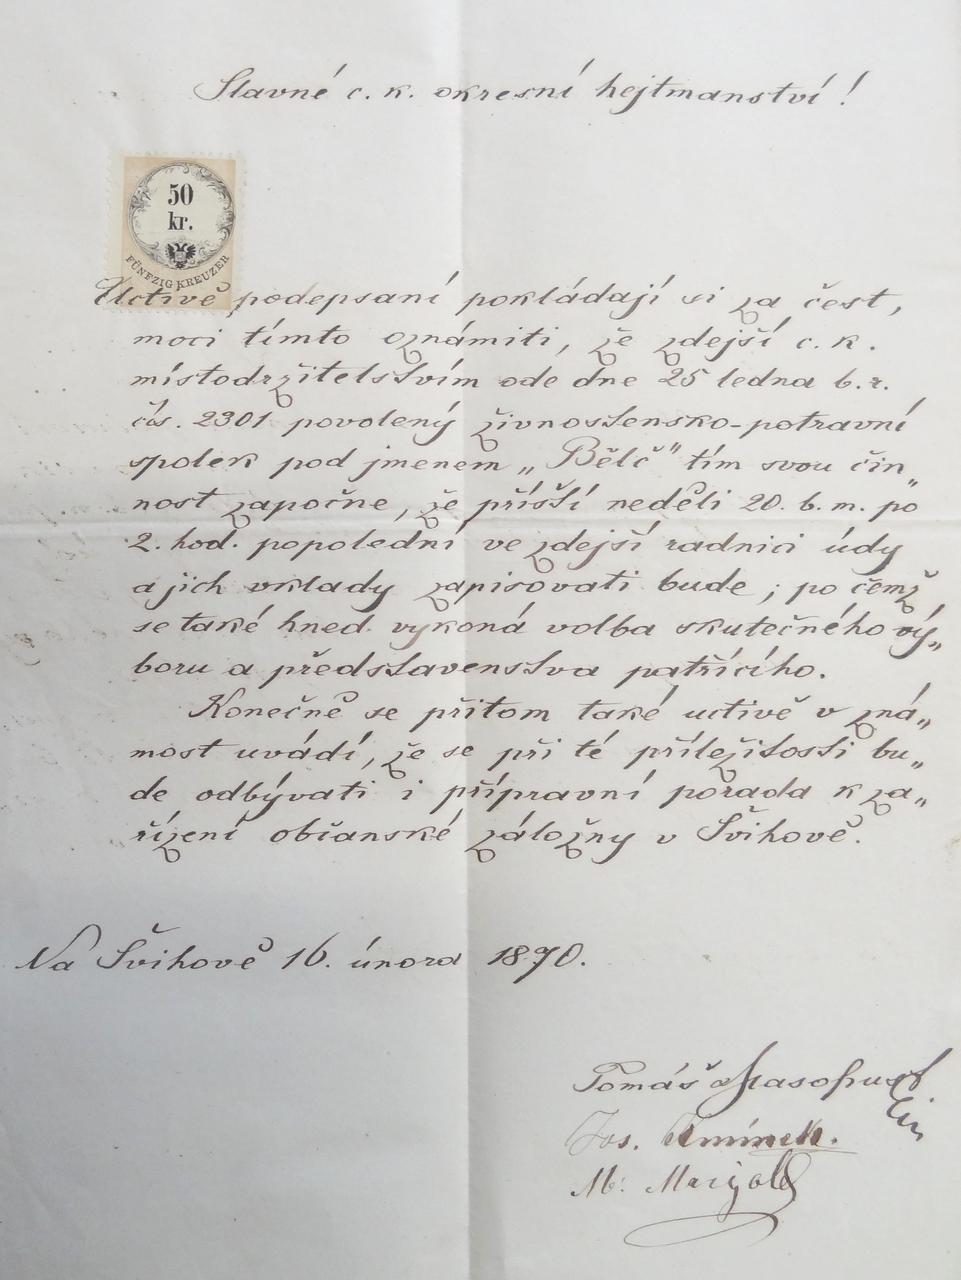 Slavné c. k. okresní hejtmanství!
50
kr.
FÜNFZIG KREUZER
Uctivě podepsaní pokládají si za čest,
moci tímto oznámiti, že zdejší c. k.
místodržitelstvím ode dne 25 ledna b. r.
čís. 2301 povolený živnostensko-potravní
spolek pod jmenem „Bělč" tím svou čin„
nost započne, že příští neděli 20. b. m. po
2. hod. popolední ve zdejší radnici údy
a jich vklady zapisovati bude; po čemž
se také hned vykoná volba skutečného vý„
boru a představenstva patřícího.
Konečně se přitom také uctivě v zná„
most uvádí, že se při té příležitosti bu„
de odbývati i přípravní porada k za„
řízení občanské záložny v Švihově.
Na Švihově 16. února 1870.
Tomáš Masopust
Jos.
M.